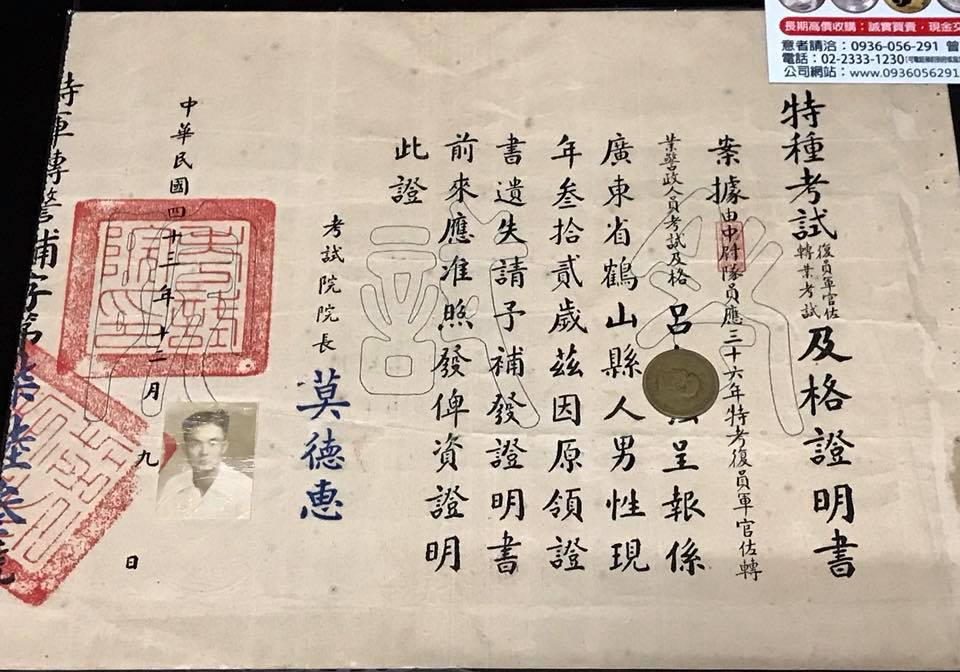 長期高價收購：誠實買賣，現金交
意者請洽：0936-056-291 曾
電話：02-2333-1230
公司網站：www.0936056291
特種考試復員軍官佐轉業考試及格證明書
案據由中尉隊員應三十六年特考復員軍官佐轉
業警政人員考試及格呂 呈報係
廣東省鶴山縣人男性現
年叁拾貳歲茲因原領證
書遺失請予補發證明書
前來應准照發俾資證明
此證
考試院院長 莫德惠
中華民國四十三年十二月九日
特軍轉警補字第